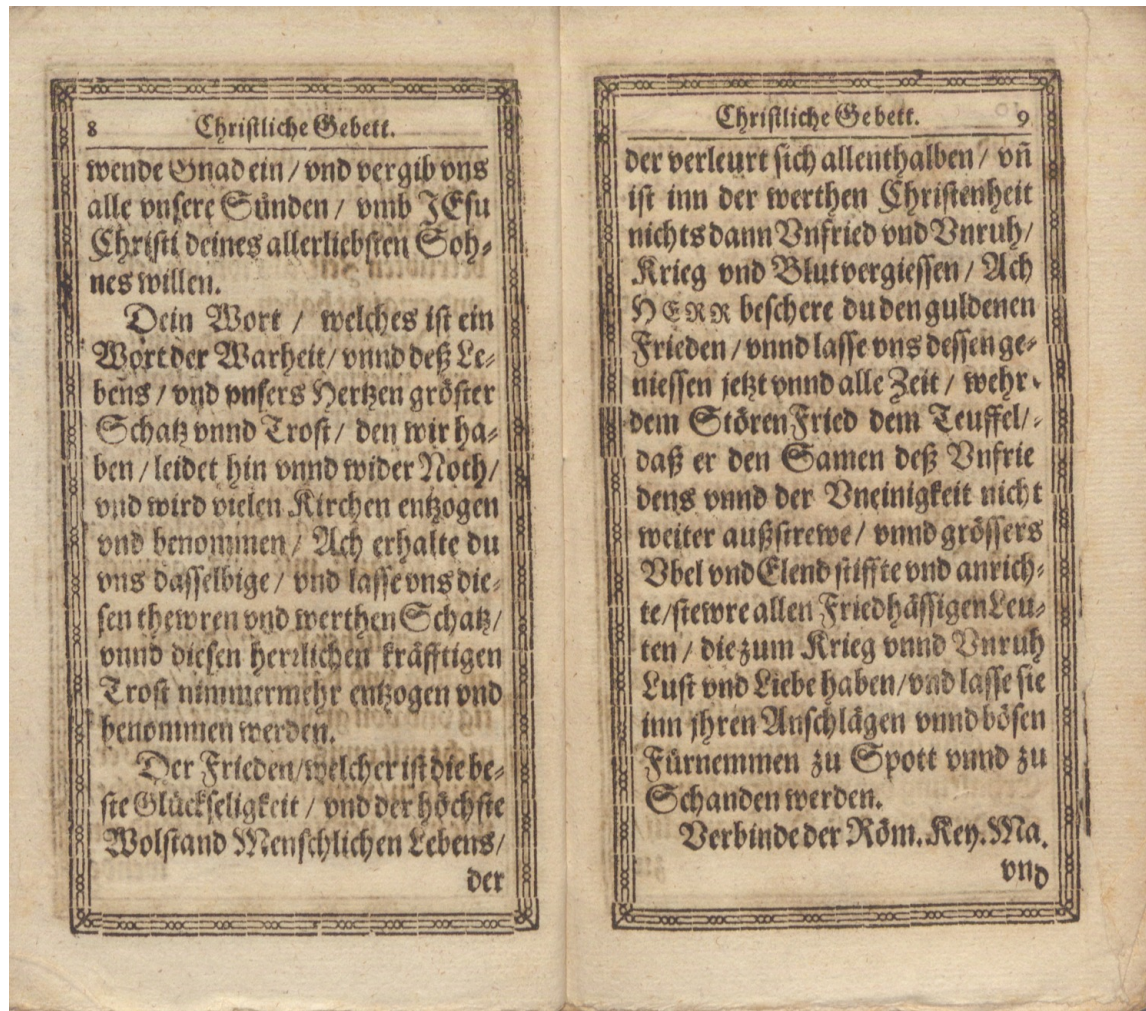 8 Christliche Gebett.
wende Gnad ein / vnd vergib vns
alle vnsere Sünden / vmb JEsu
Christi deines allerliebsten Soh-
nes willen.
Dein Wort / welches ist ein
Wort der Warheit / vnnd deß Le-
bens / vnd vnsers Hertzen gröster
Schatz vnnd Trost / den wir ha-
ben / leidet hin vnnd wider Noth /
vnd wird vielen Kirchen entzogen
vnd benommen / Ach erhalte du
vns dasselbige / vnd lasse vns die-
sen thewren vnd werthen Schatz /
vnnd diesen herzlichen kräfftigen
Trost nimmermehr entzogen vnd
benommen werden.
Der Frieden / welcher ist die be-
ste Glückseligkeit / vnd der höchste
Wolstand Menschlichen Lebens /
der
Christliche Gebett. 9
der verleurt sich allenthalben / vñ
ist inn der werthen Christenheit
nichts dann Vnfried vnd Vnruh /
Krieg vnd Blutvergiessen / Ach
HERR beschere du den guldenen
Frieden / vnnd lasse vns dessen ge-
niessen jetzt vnnd alle Zeit / wehr
dem StörenFried dem Teuffel /
daß er den Samen deß Vnfrie
dens vnnd der Vneinigkeit nicht
weiter außstrewe / vnnd grössers
Vbel vnd Elend stiffte vnd anrich-
te / stewre allen Friedhässigen Leu-
ten / die zum Krieg vnnd Vnruh
Lust vnd Liebe haben / vnd lasse sie
inn jhren Anschlägen vnnd bösen
Fürnemmen zu Spott vnnd zu
Schanden werden.
Verbinde der Röm. Key. Ma.
vnd